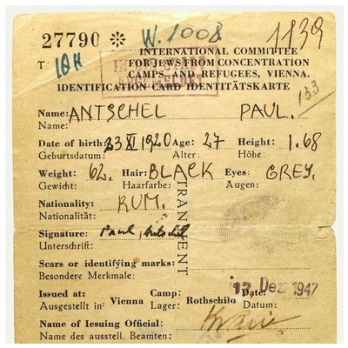 27790 * W.1008 1139
T 10H
INTERNATIONAL COMMITTEE
FOR JEWS FROM CONCENTRATION
CAMPS, AND REFUGEES, VIENNA.
IDENTIFICATION CARD IDENTITÄTSKARTE
133
Name: ANTSCHEL PAUL.
Name:
Date of birth: 23 XI 1920 Age: 27 Height: 1.68
Geburtsdatum: Alter: Höhe:
Weight: 62. Hair: BLACK Eyes: GREY.
Gewicht: Haarfarbe: Augen:
TRANSIENT
Nationality: RUM.
Nationalität:
Signature: Paul Antschel
Unterschrift:
Scars or identifying marks:
Besondere Merkmale:
Issued at: Vienna Camp: Rothschild Date: 17. Dez. 1947
Ausgestellt in: Lager: Datum:
Name of Issuing Official:
Name des ausstell. Beamten: